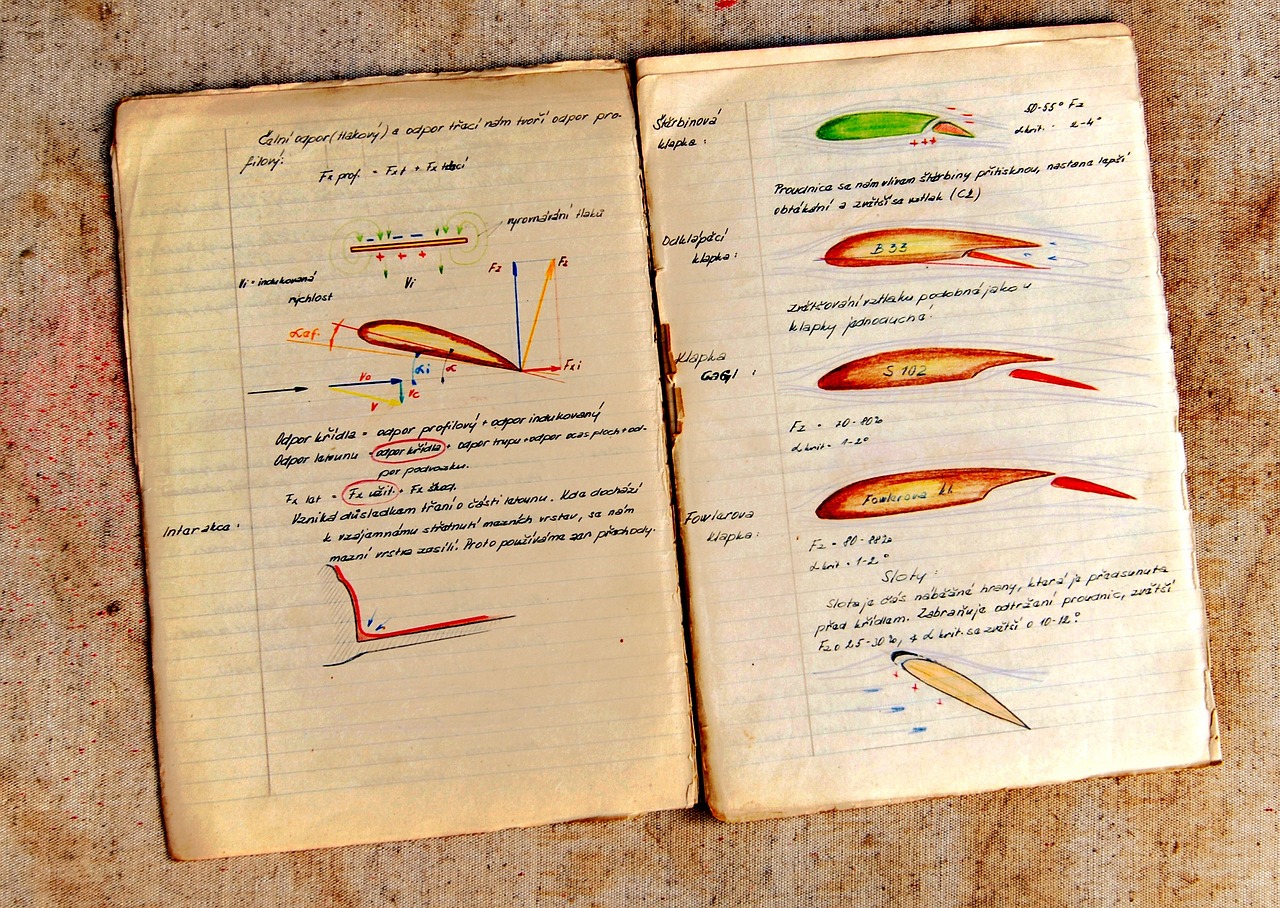 Čelní odpor (tlakový) a odpor třací nám tvoří odpor pro-
filový:
Fx prof. = Fxt + Fx třecí
vyrovnávání tlaků
Vi
Vi = indukovaná
rychlost
Fz
Fz
αef.
αi
α
Fxi
Vo
Vc
V
Odpor křídla = odpor profilový + odpor indukovaný
Odpor letounu = odpor křídla + odpor trupu + odpor ocas ploch + od-
por podvozku.
Fx let = Fx užit. + Fx škod.
Interakce:
Vzniká důsledkem tření o části letounu. Kde dochází
k vzájemnému střetnutí mezních vrstev, se nám
mezní vrstva zesílí. Proto používáme zan přechody.
Štěrbinová
klapka:
50-55° Fz
αkrit. 2-4°
Proudnice se nám vlivem štěrbiny přitisknou, nastane lepší
obtékání a zvětší se vztlak (Cz)
Odklápěcí
klapka:
B 33
zvětšování vztlaku podobné jako u
klapky jednoduché.
Klapka
GaGl:
S 102
Fz = 70-80%
αkrit = 1-2°
Fowlerova
klapka:
Fowlerova kl.
Fz = 80-88%
αkrit = 1-2°
Sloty:
Slot je část náběžné hrany, která je předsunuta
před křídlem. Zabraňuje odtržení proudnic, zvětší
Fz o 25-30%, α krit. se zvětší o 10-12°